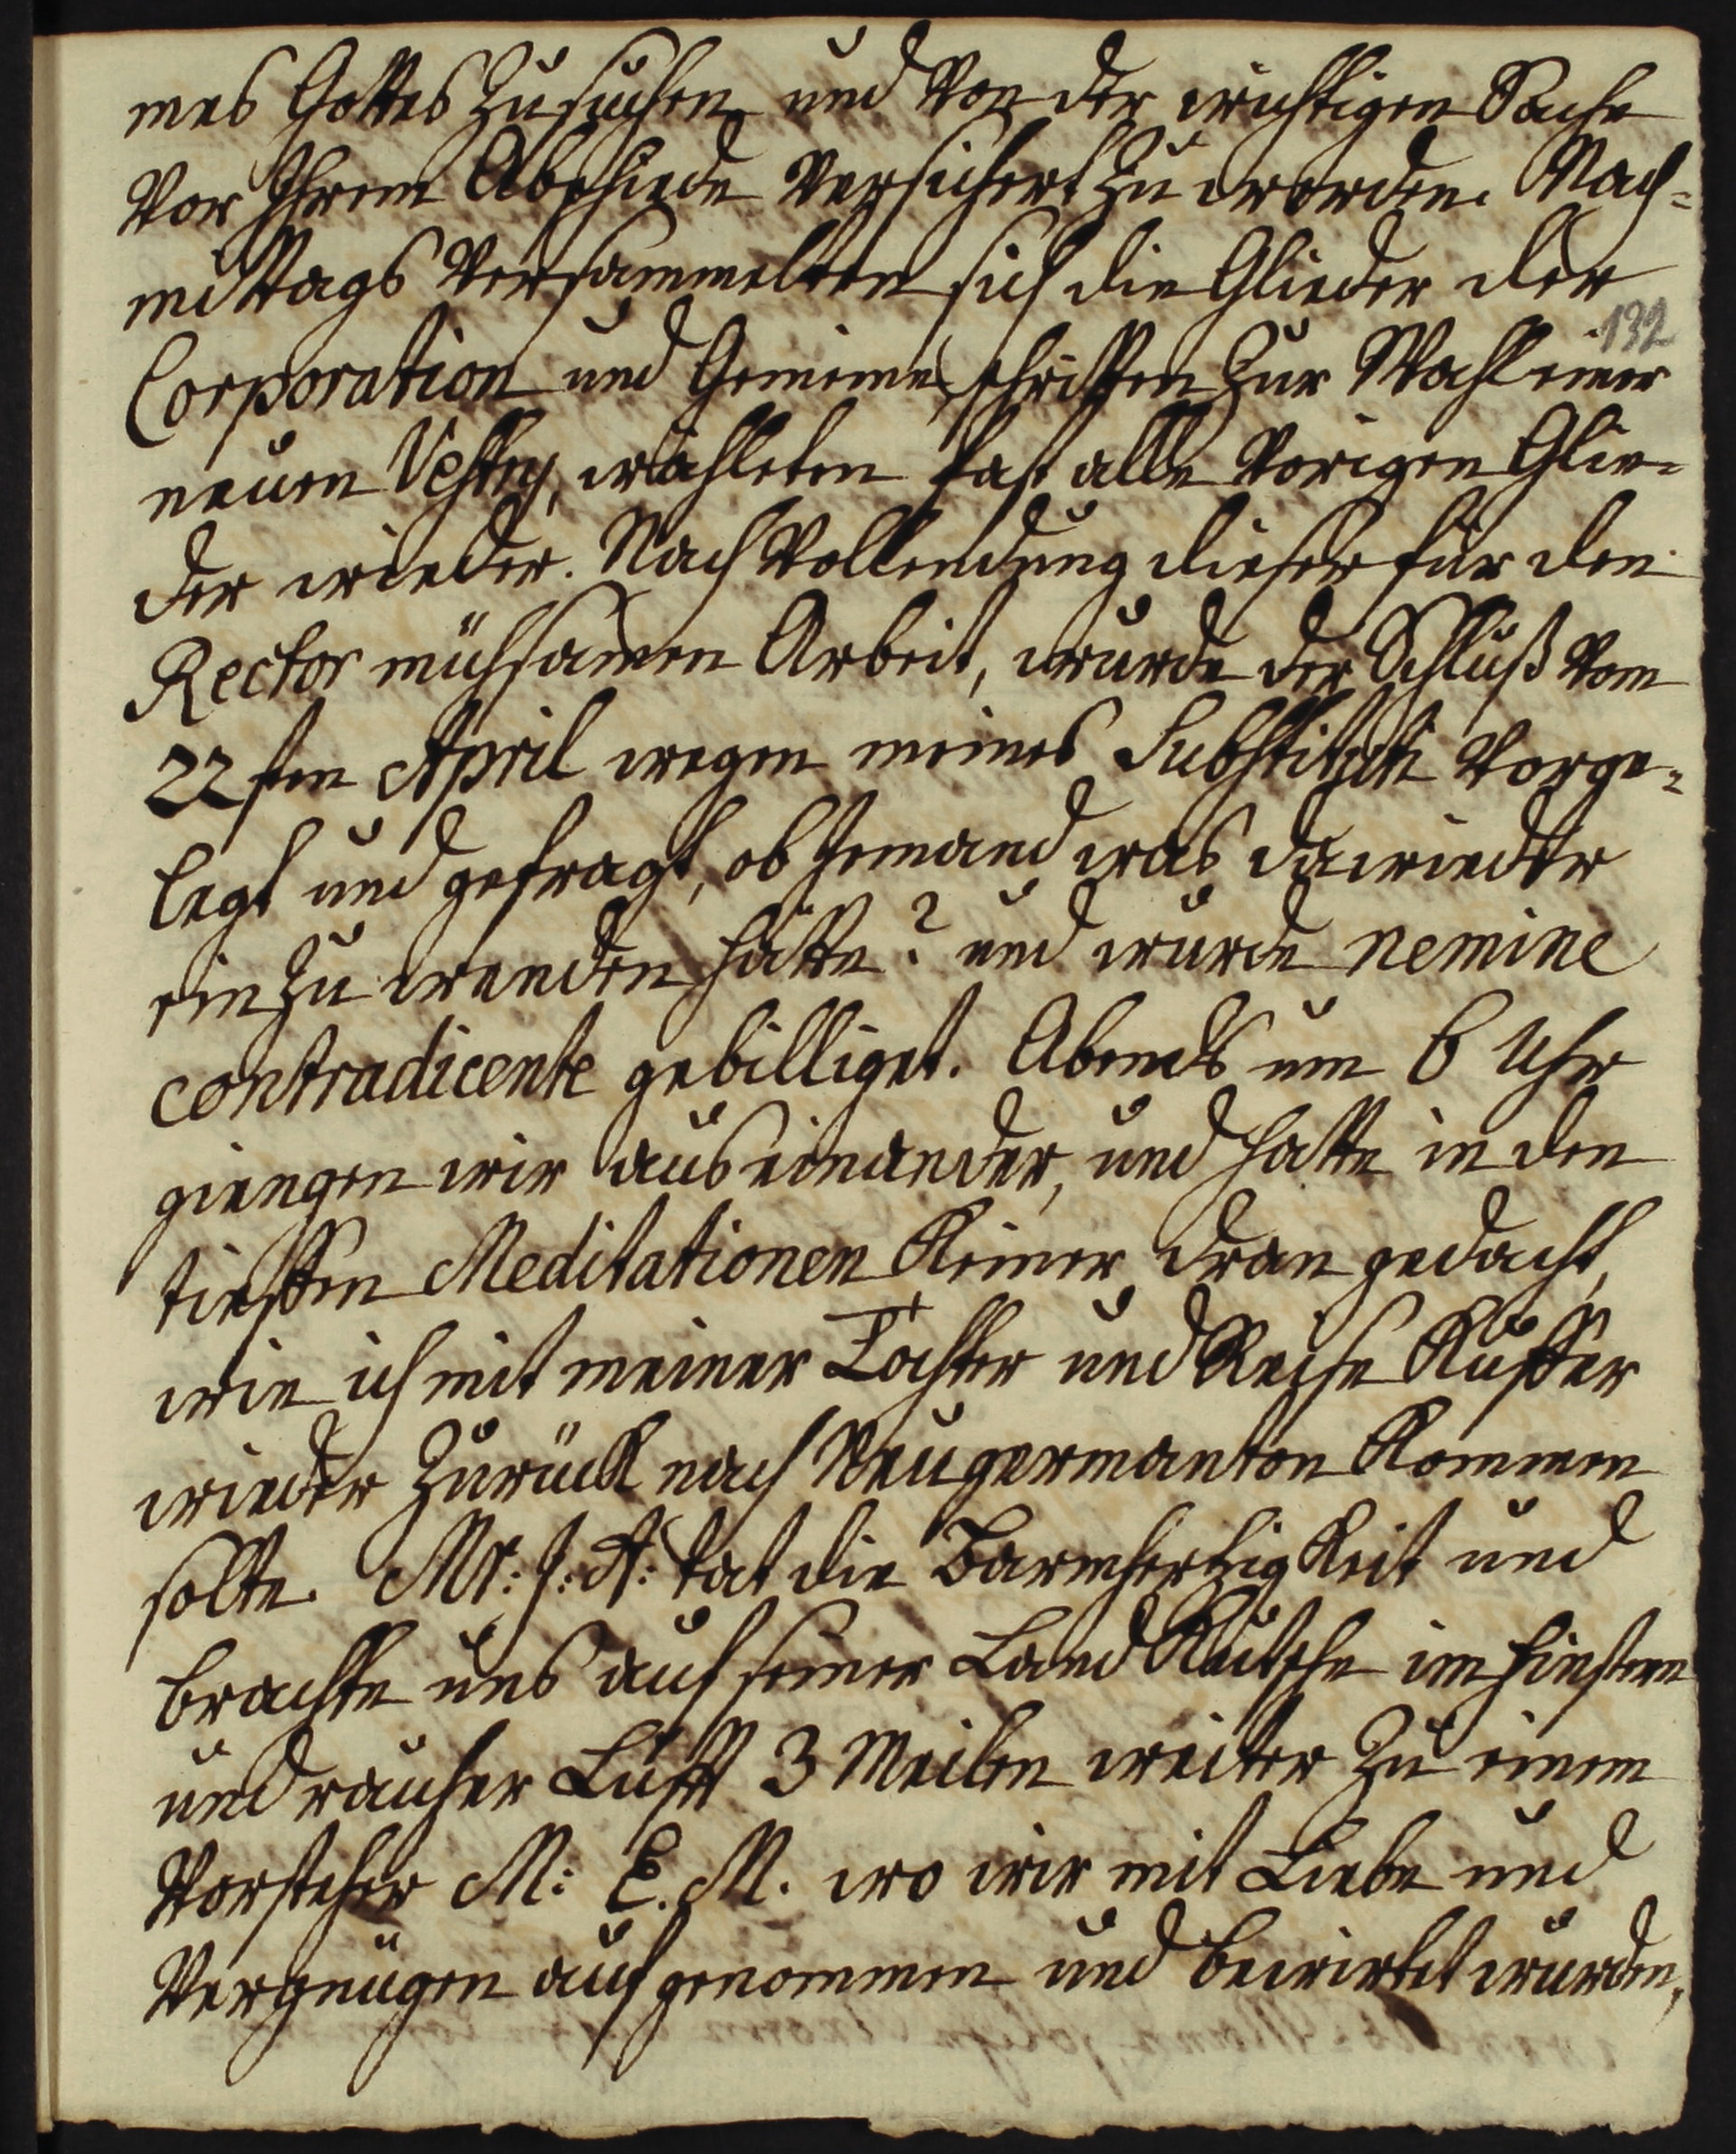 mes Gottes zu suchen und von der wichtigen Sache
vor Ihrem Abschiede versichert zu werden. Nach=
mittags versammelten sich die Glieder der
132
Corporation und Gemeine, schritten zur Wahl einer
neuen Vestry, wählten fast alle vorigen Glie=
der wieder. Nach Vollendung dieser für den
Rector mühsamen Arbeit, wurde der Schluß vom
22sten April wegen meines Substituti vorge=
legt und gefragt, ob Jemand was dawieder
ein zu wenden hätte? und wurde nemine
contradicente gebilliget. Abends um 6 Uhr
giengen wir aus einander, und hatte in den
tieffen Meditationen Keiner dran gedacht,
wie ich mit meiner Tochter und Reise Kuffer
wieder zurück nach Neugermanton Kommen
solte. Mr: J: A: tat die Barmhertzigkeit und
brachte uns auf seiner Land Kutsche im finstern
und rauher Lufft 3 Meilen weiter zu einem
Vorsteher M: E. M. wo wir mit Liebe und
Vergnügen aufgenommen und bewirtet wurden,